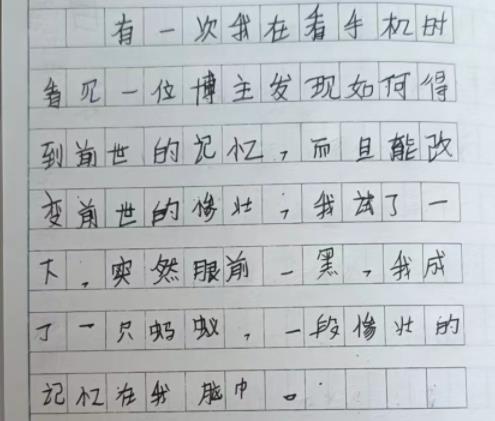 有一次我在看手机时
看见一位博主发现如何得
到前世的记忆，而且能改
变前世的惨壮，我试了一
下，突然眼前一黑，我成
了一只蚂蚁，一段惨壮的
记忆在我脑中。